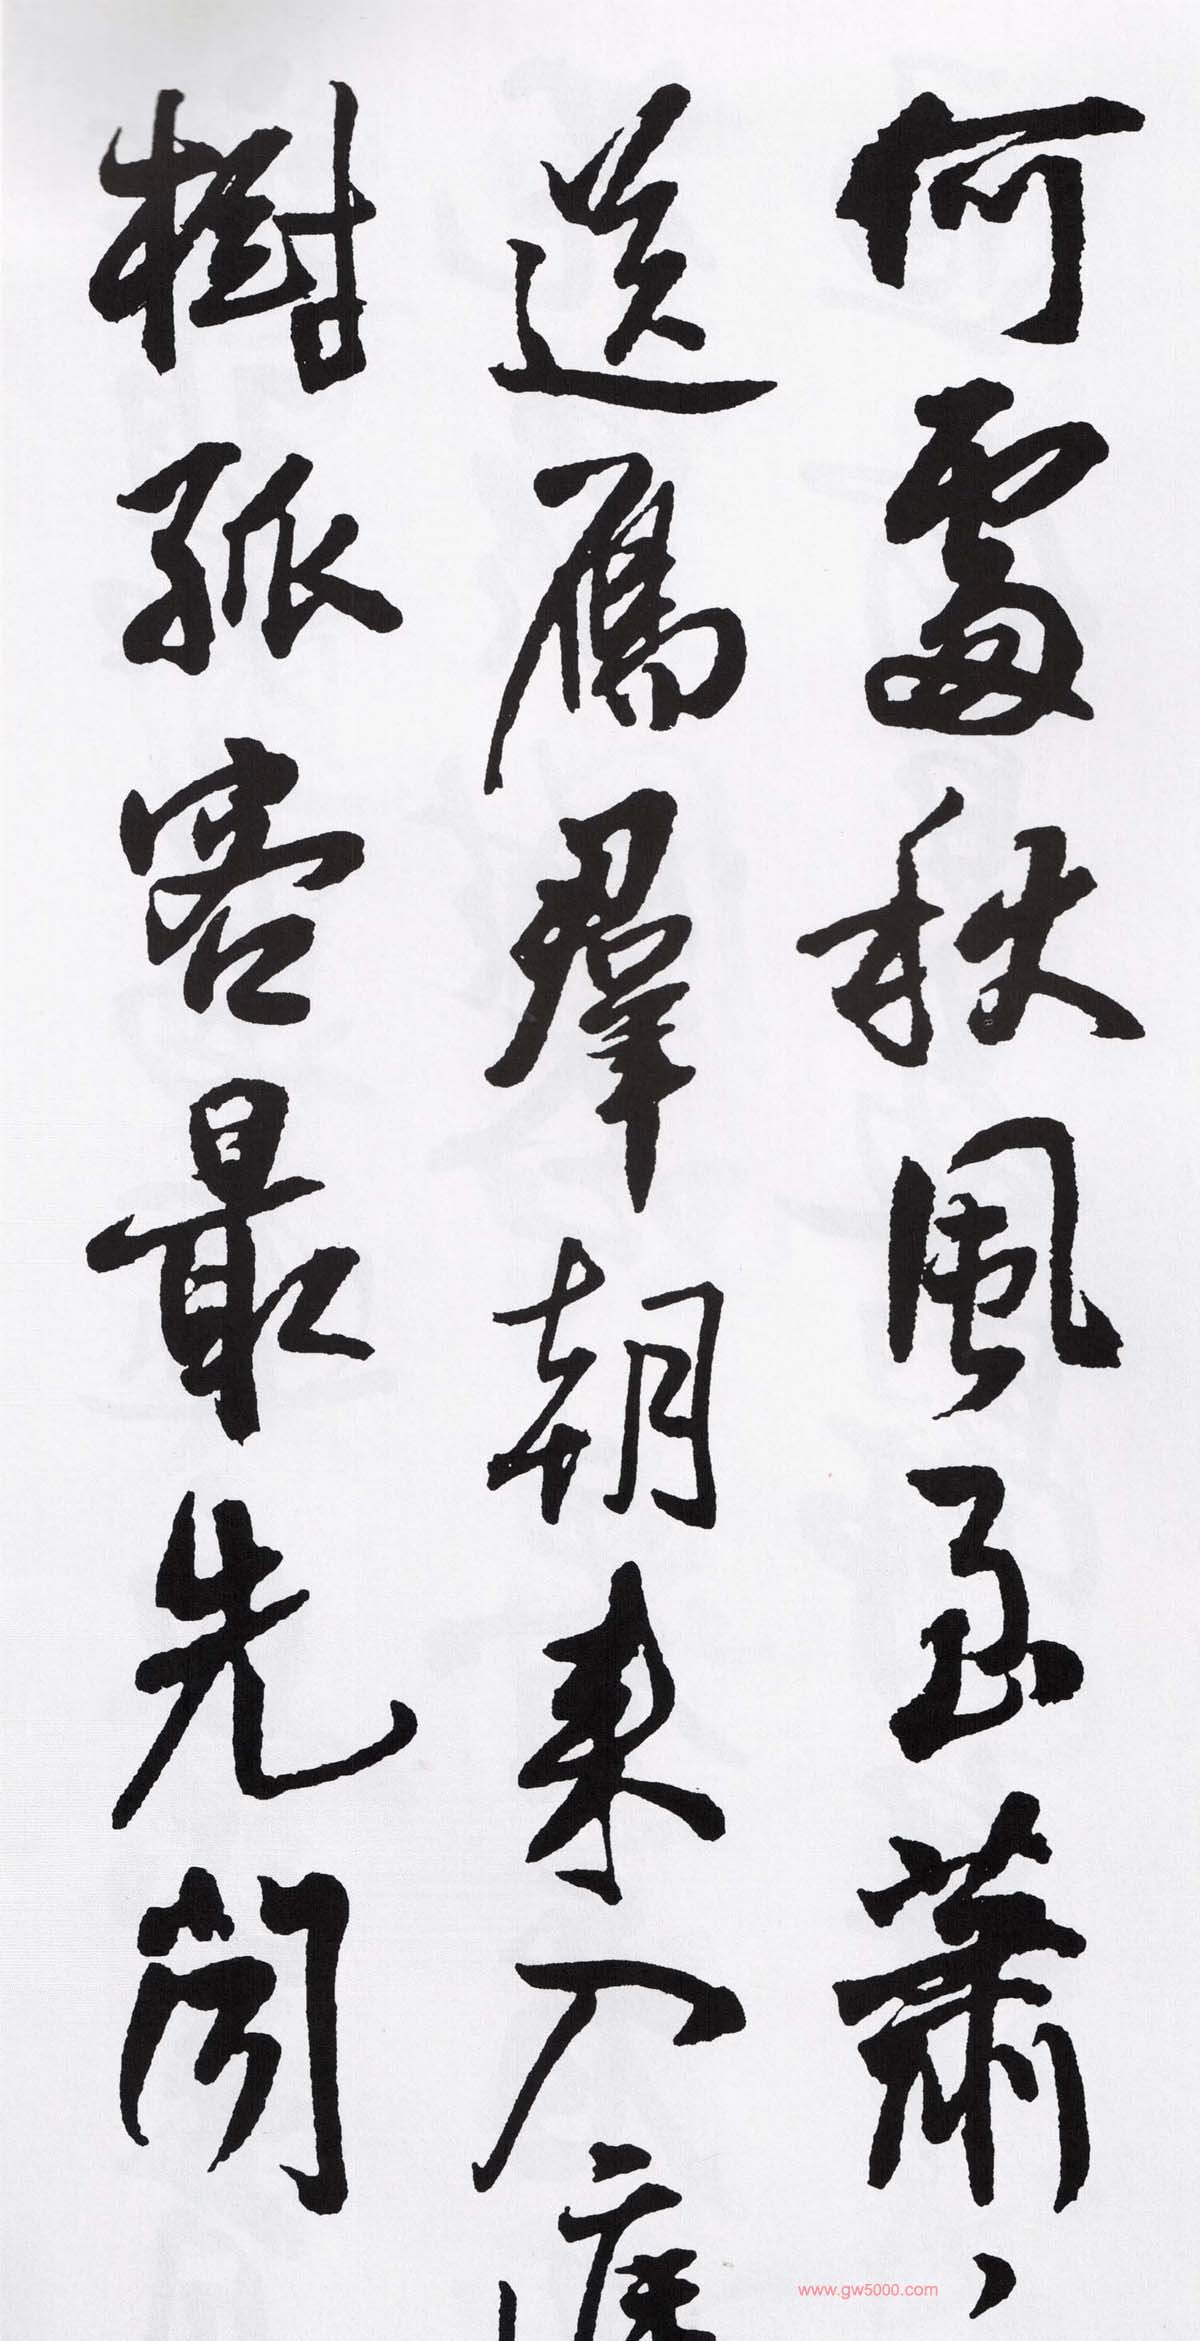 何處秋風至蕭〻
送雁群朝來入庭
樹孤客最先聞
www.gw5000.com